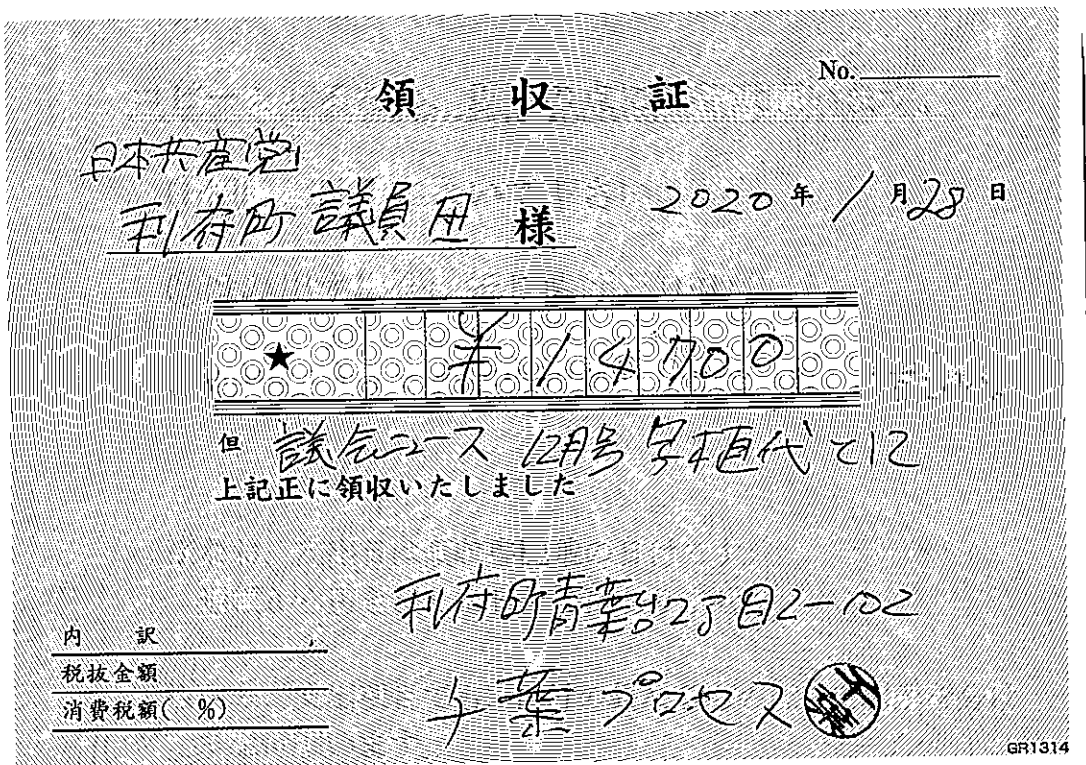 領収証
No.
日本共産党
利府町議員団 様
2020年1月28日
★ ¥14700
但 議会ニュース 12月号 写植代として
上記正に領収いたしました
利府町青葉台2丁目2-102
千葉プロセス
千葉
内訳
税抜金額
消費税額( %)
GR1314